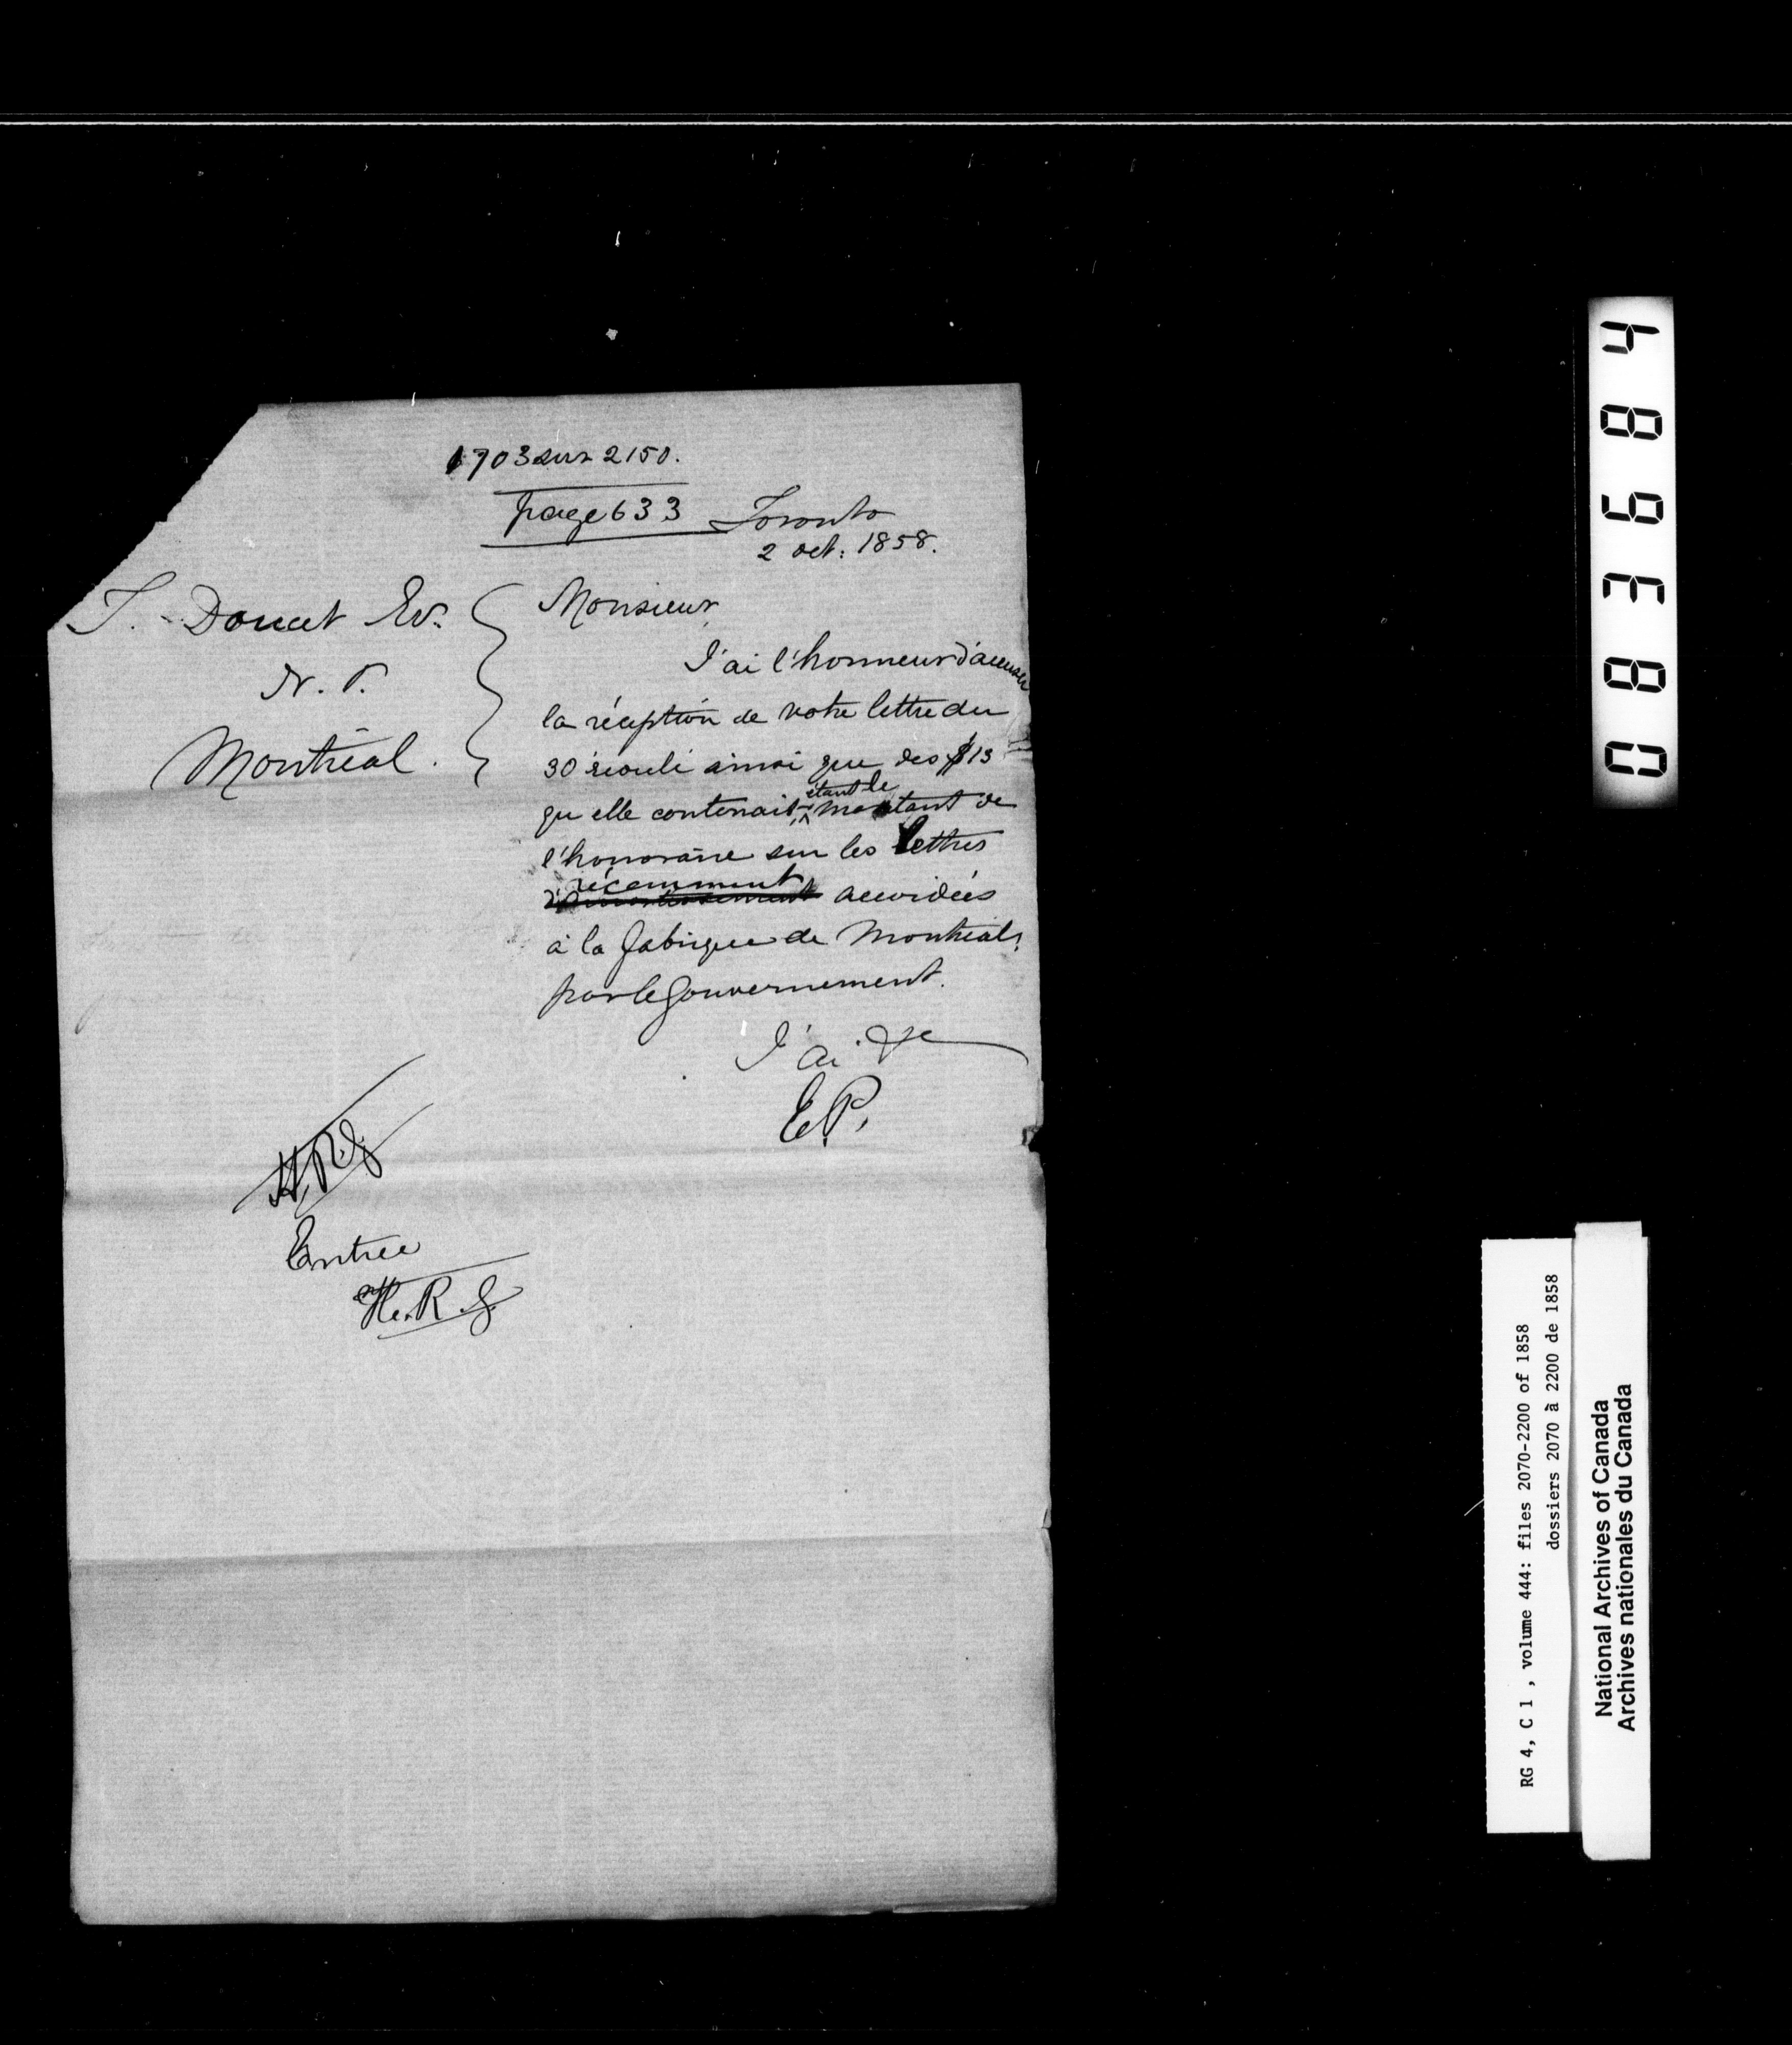 1703 sur 2150.
page 633
Toronto
2 oct: 1858.
T. Doucet Er.
N. P.
Montréal.
Monsieur
J'ai l'honneur d'accuser
la réception de votre lettre du
30 écoulé ainsi que des $13
qu'elle contenait, étant le montant de
l'honoraire sur les lettres
récemment accordées
à la fabrique de Montréal,
par le Gouvernement.
J'ai &c
E.P.
H.R.G.
Entrée
H.R.G.
083684
RG 4, C 1 , volume 444: files 2070-2200 of 1858
dossiers 2070 à 2200 de 1858
National Archives of Canada
Archives nationales du Canada